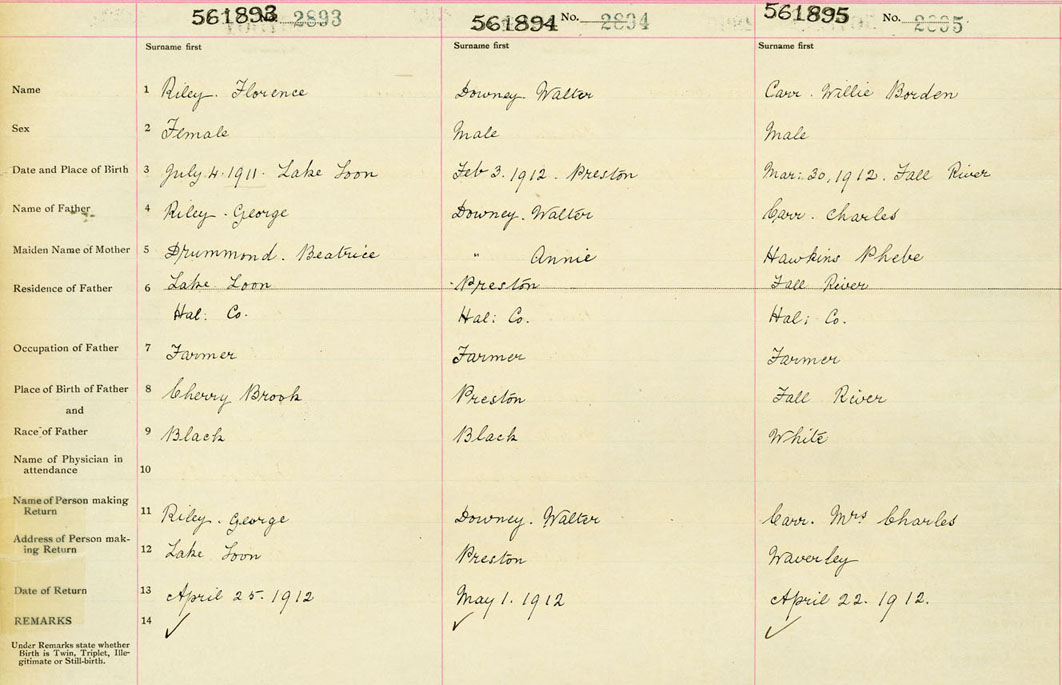 561893 No. 2893 561894 No. 2894 561895 No. 2895
Surname first Surname first Surname first
Name 1 Riley. Florence Downey. Walter Carr. Willie Borden
Sex 2 Female Male Male
Date and Place of Birth 3 July 4. 1911. Lake Loon Feb 3. 1912. Preston Mar: 30, 1912. Fall River
Name of Father 4 Riley. George Downey. Walter Carr. Charles
Maiden Name of Mother 5 Drummond. Beatrice " Annie Hawkins Phebe
Residence of Father 6 Lake Loon Preston Fall River
Hal: Co. Hal: Co. Hal: Co.
Occupation of Father 7 Farmer Farmer Farmer
Place of Birth of Father 8 Cherry Brook Preston Fall River
and
Race of Father 9 Black Black White
Name of Physician in
attendance 10
Name of Person making
Return 11 Riley. George Downey. Walter Carr. Mrs Charles
Address of Person mak-
ing Return 12 Lake Loon Preston Waverley
Date of Return 13 April 25. 1912 May 1. 1912 April 22. 1912.
REMARKS 14 ✓ ✓ ✓
Under Remarks state whether
Birth is Twin, Triplet, Ille-
gitimate or Still-birth.